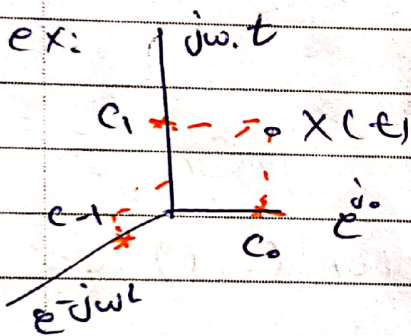 ex: jω.t
C1 X(t)
C-1
C0 e^j0
e^-jωt